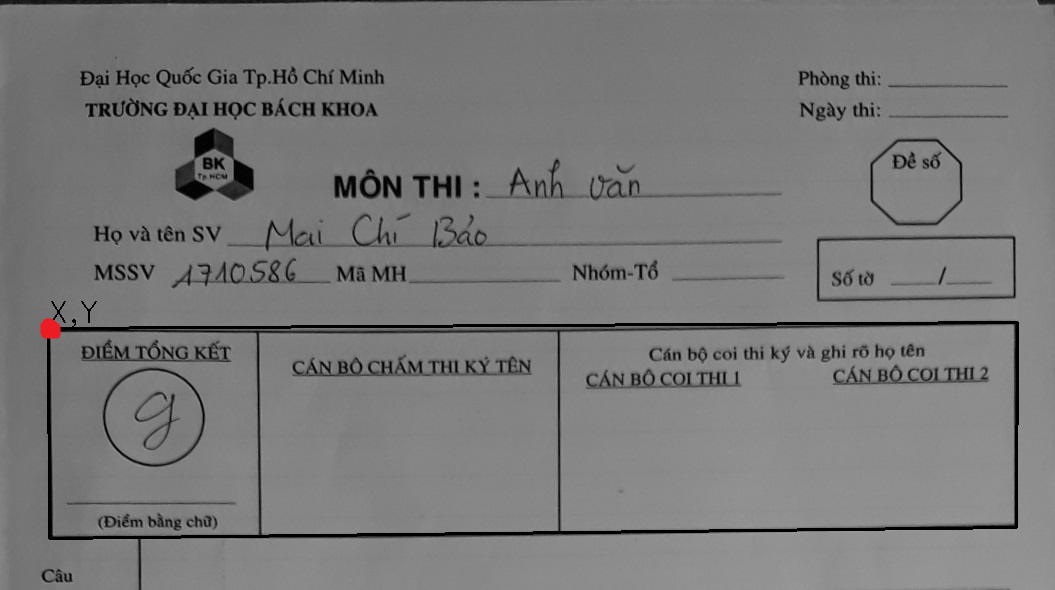 Đại Học Quốc Gia Tp.Hồ Chí Minh
TRƯỜNG ĐẠI HỌC BÁCH KHOA
Phòng thi:
Ngày thi:
BK
TP.HCM
MÔN THI : Anh văn
Đề số
Họ và tên SV Mai Chí Bảo
MSSV 1710586 Mã MH Nhóm-Tổ
Số tờ /
X,Y
ĐIỂM TỔNG KẾT
CÁN BỘ CHẤM THI KÝ TÊN
Cán bộ coi thi ký và ghi rõ họ tên
CÁN BỘ COI THI 1 CÁN BỘ COI THI 2
9
(Điểm bằng chữ)
Câu